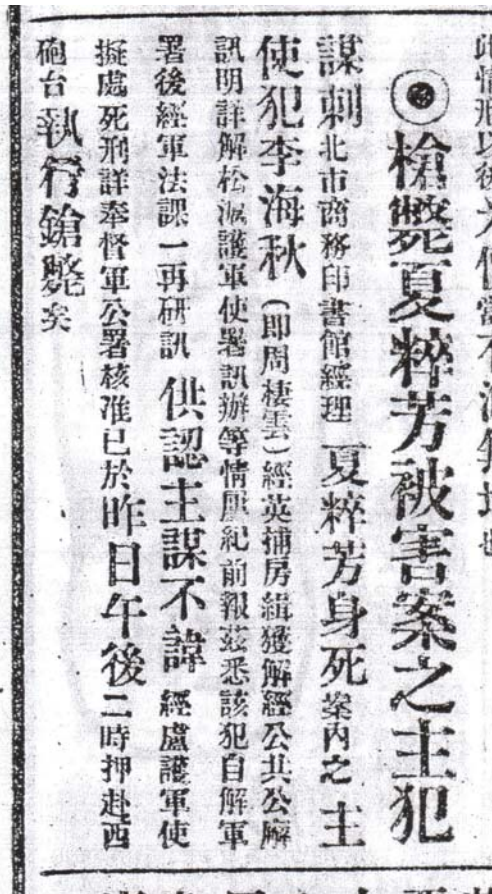 ◉槍斃夏粹芳被害案之主犯
謀刺北市商務印書館經理夏粹芳身死案內之主
使犯李海秋（即周棲雲）經英捕房緝獲解經公共公廨
訊明詳解松滬護軍使署訊辦等情屢紀前報茲悉該犯自解軍
署後經軍法課一再研訊供認主謀不諱經盧護軍使
擬處死刑詳奉督軍公署核准已於昨日午後二時押赴西
砲台執行鎗斃矣